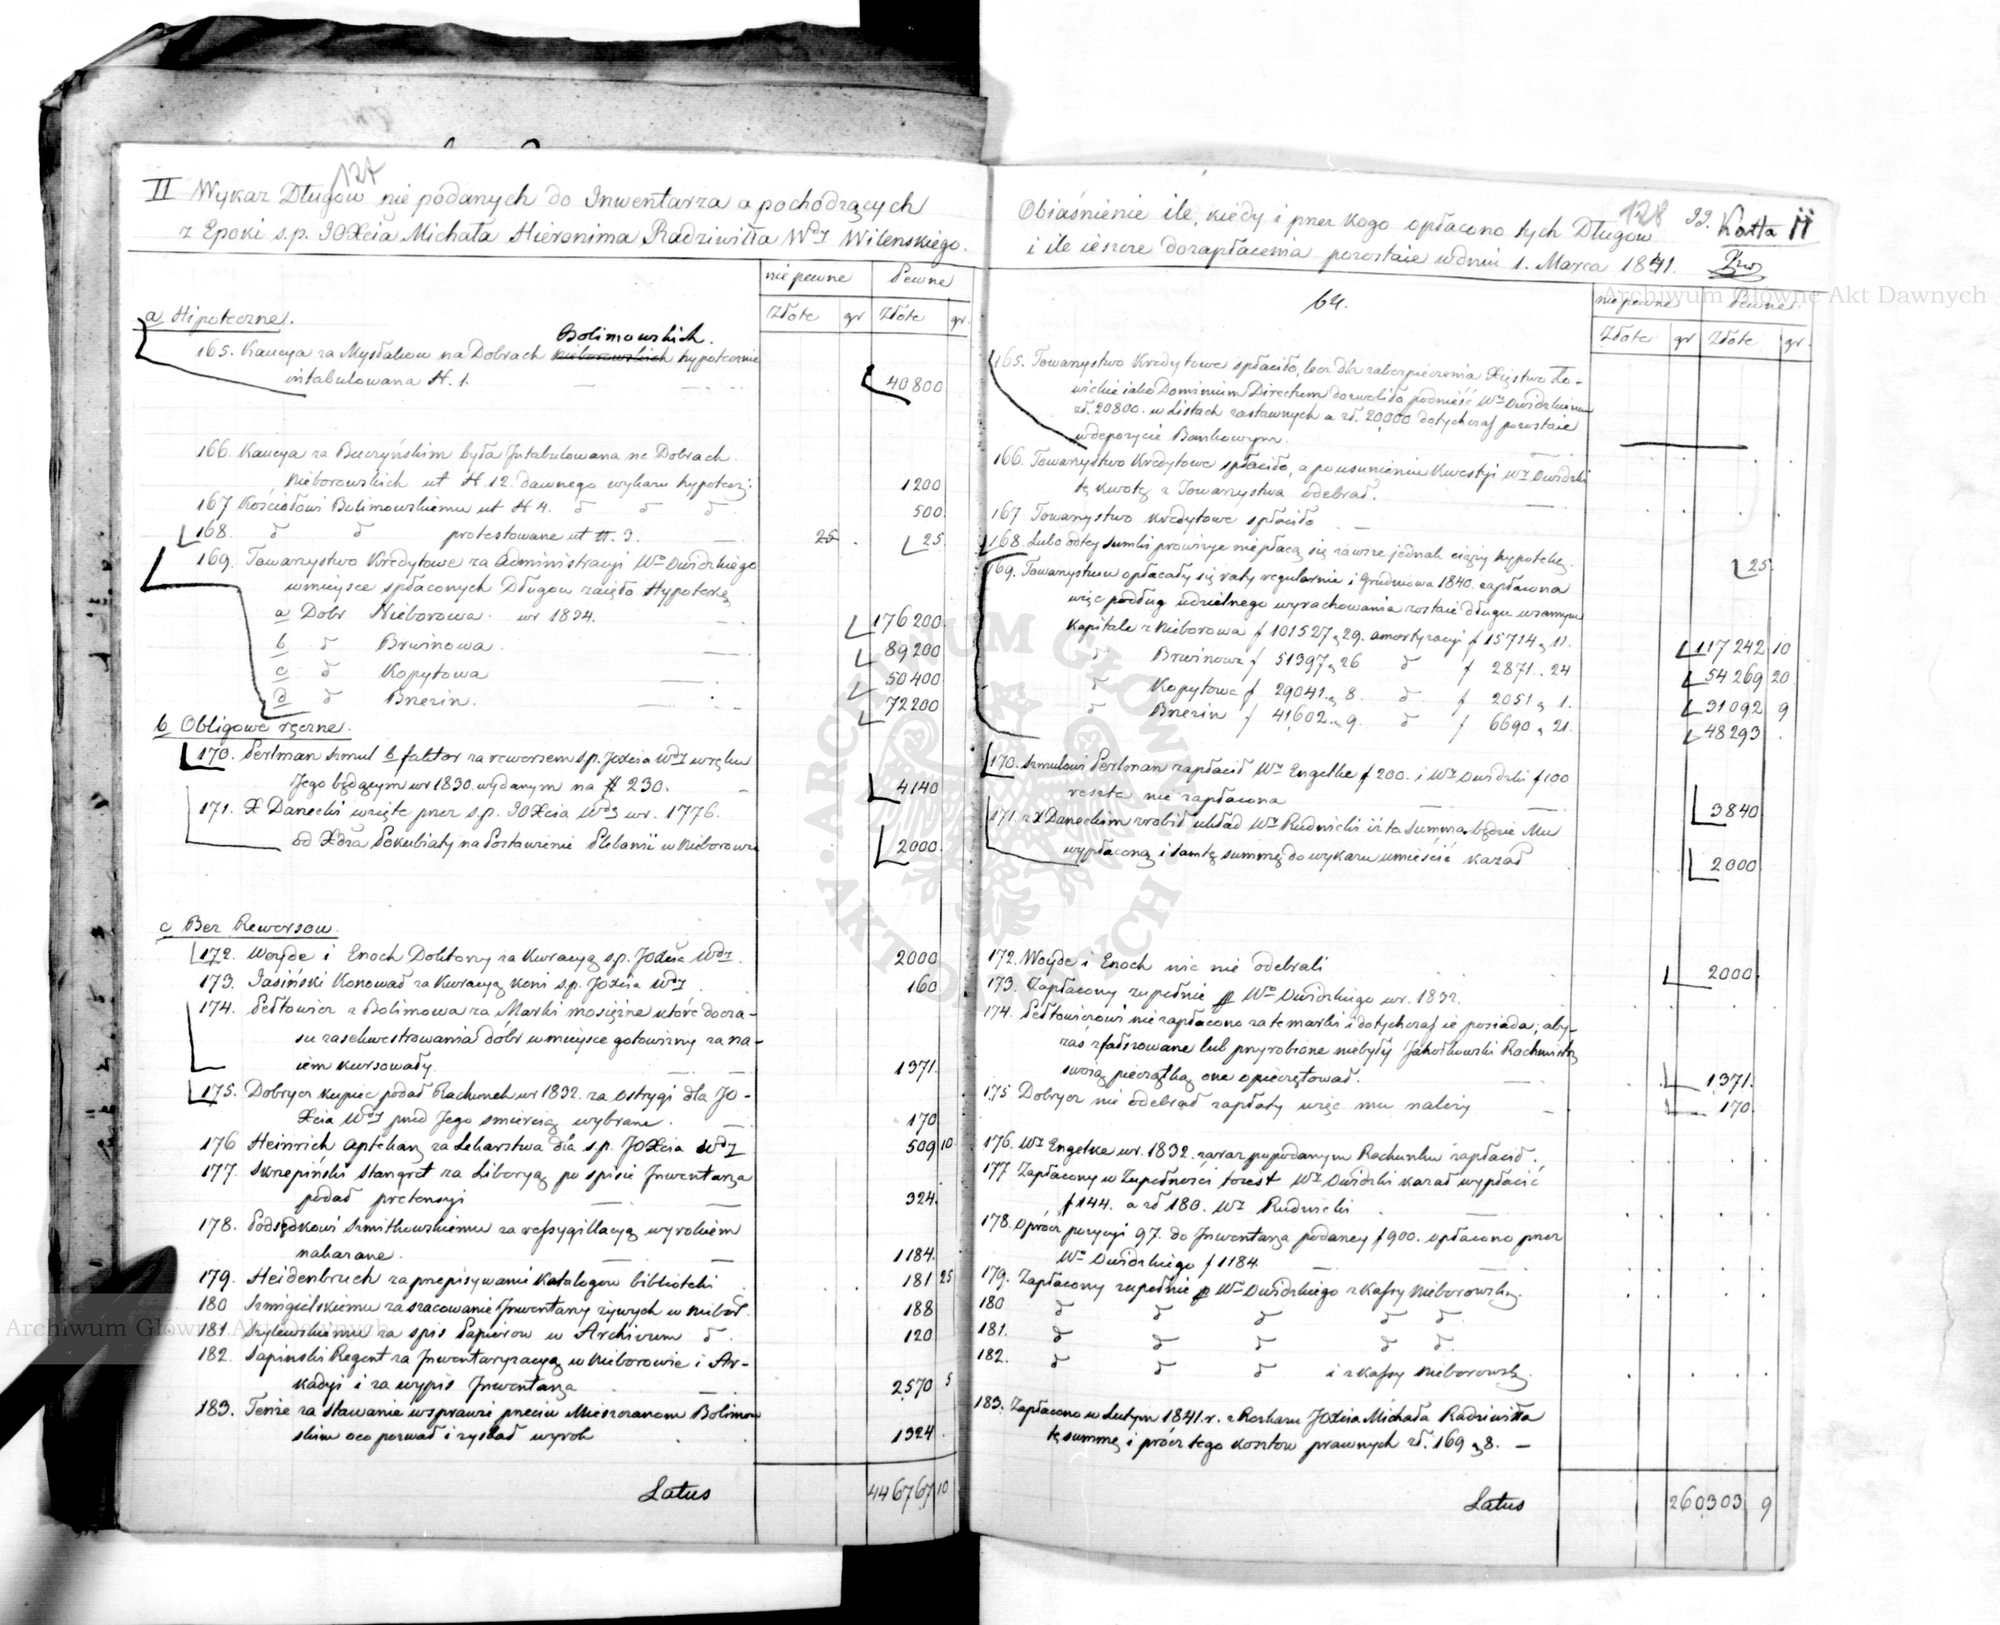 127
II Wykaz Długów nie podanych do Inwentarza a pochodzących
z Epoki s.p. JOXcia Michała Hieronima Radziwiłła Wdy Wilenskiego.
nie pewne Pewne
Złote gr Złote gr.
a Hipoteczne.
Bolimowskich.
165. Kaucya za Mysłakow na Dobrach Nieborowskich hypotecznie
intabulowana H. 1. 40800
166. Kaucya za Buczyńskim była Intabulowana na Dobrach
Nieborowskich ut H 12 dawnego wykazu hypotecz: 1200
167 Kościołowi Bolimowskiemu ut H 4. d d d 500.
168. d d protestowane ut H. 3. 25 25
169. Towarzystwo Kredytowe za Administracyi Wo Owidzkiego
w miejsce spłaconych Długow zaięło Hypotekę
a Dobr Nieborowa. w r 1834. 176200
b d Brwinowa. 89200
c d Kopytowa 50400
d d Bnezin. 72200
b Obligowe ręczne.
170. Perlman Szmul b. faktor za rewersem s.p. Joxcia Wdy w ręku
Jego będącym w r 1830. wydanym na # 230. 4140
171. X Danecki wzięte przez s.p. JOXcia Wdę w r. 1776.
od Xdza Sokubiaty na Postawienie Plebanii w Nieborowie 2000
c Bez Rewersow.
172. Woyde i Enoch Doktorzy za Kuracyą s.p. JOXcia Wdy. 2000
173. Jasiński Konował za Kuracyą koni s.p. Joxcia Wdy. 160
174. Pełtowicz z Bolimowa za Marki mosiężne które do cza-
su zasekwestrowania dóbr w miejsce gotowizny za na-
iem kursowały. 1371.
175. Dobrycz kupiec podał Rachunek w r 1832. za Ostrygi dla JO-
Xcia Wdy przed Jego smiercią wybrane. 170
176 Heinrich Aptekarz za Lekarstwa dla s.p. JOXcia Wdy 509 10
177. Skrzepiński Stangret za Liberyą po spisie Inwentarza
podał pretensyi 324.
178. Podsędkowi Szmitkowskiemu za ressygillacyą wyrokiem
nakazane. 1184.
179. Heidenbruch za przepisywanie Katalogow biblioteki 181 25
180 Szmigielskiemu za szacowanie Inwentarzy żywych w Niebor. 188
181. Szylewskiemu za spis Papierow w Archiwum d. 120
182. Sapinski Regent za Inwentaryzacyą w Nieborowie i Ar-
kadyi i za wypis Inwentarza 2570 5
183. Tenże za stawanie w sprawie przeciw Mieszczanom Bolimow
skim oco pozwał i zyskał wyrok 1324.
Latus 446767 10
128 33. Karta ii
Obiaśnienie ile, kiedy i przez kogo opłacono tych Długow
i ile ieszcze do zapłacenia pozostaie w dniu 1. Marca 1841.
64.
nie pewne Pewne.
Złote gr Złote gr.
165. Towarzystwo Kredytowe spłaciło, lecz dla zabezpieczenia Xięstwo Ło-
wickie iako Dominium Directum dozwoliło podnieść Wu Owidzkiemu
zł. 20800. w Listach zastawnych a zł. 20,000 dotychczas pozostaie
w depozycie Bankowym.
166. Towarzystwo Kredytowe spłaciło, a po usunieniu Kwestyi Wy Owidzki
tę kwotę z Towarzystwa odebrał.
167 Towarzystwo kredytowe spłaciło
168. Lubo od tey sumki prowizye nie płacą się zawsze jednak ciąży hypotekę. 25
169. Towarzystwu opłacały się raty regularnie i Grudniowa 1840. zapłacona
więc podług udzielnego wyrachowania zostaie długu w samym
Kapitale z Nieborowa f 101527 „ 29. amortyzacyi f 15714 „ 11. 117242 10
d Brwinowa f 51397 „ 26 d f 2871 „ 24 54269 20
d Kopytowa f 29041 „ 8. d f 2051 „ 1. 31092 9
d Bnezin f 41,602 „ 9. d f 6690 „ 21. 48293
170. Szmulowi Perlman zapłacił Wy Engelke f 200. i Wy Owidzki f 100
reszta nie zapłacona 3840
171. z X Daneckim zrobił układ Wy Rudnicki iż ta Summa będzie Mu
wypłaconą i samtę summę do wykazu umieścić kazał 2000
172. Woyde i Enoch nic nie odebrali 2000
173. Zapłacony zupełnie p Wo Owidzkiego w r. 1832.
174. Pełtowiczowi nie zapłacono za te marki i dotychczas ie posiada; aby-
zaś zfałszowane lub przyrobione niebyły Jakołkowski Rachmistrz
swoią pieczątką one opieczętował. 1371.
175 Dobrycz nie odebrał zapłaty więc mu należy 170
176. Wy Engelke w r. 1832. zaraz po podanym Rachunku zapłacił.
177 Zapłacony w Zupełności to iest Wy Owidzki kazał wypłacić
f 144. a zł 180. Wy Rudnicki
178. Oprócz pozycyi 97. do Inwentarza podaney f 900. opłacono przez
Wo Owidzkiego f 1184.
179. Zapłacony zupełnie p Wo Owidzkiego z Kassy Nieborowskiej.
180 d d d d d.
181. d d d d d.
182. d d d i z Kassy Nieborowsk.
183. Zapłacono w Lutym 1841. r. z Rozkazu JOXcia Michała Radziwiłła
tę summę i prócz tego kosztow prawnych zł. 169 „ 8.
Latus 260303 9
Archiwum Główne Akt Dawnych
Archiwum Główne Akt Dawnych
ARCHIWUM GŁÓWNE AKT DAWNYCH